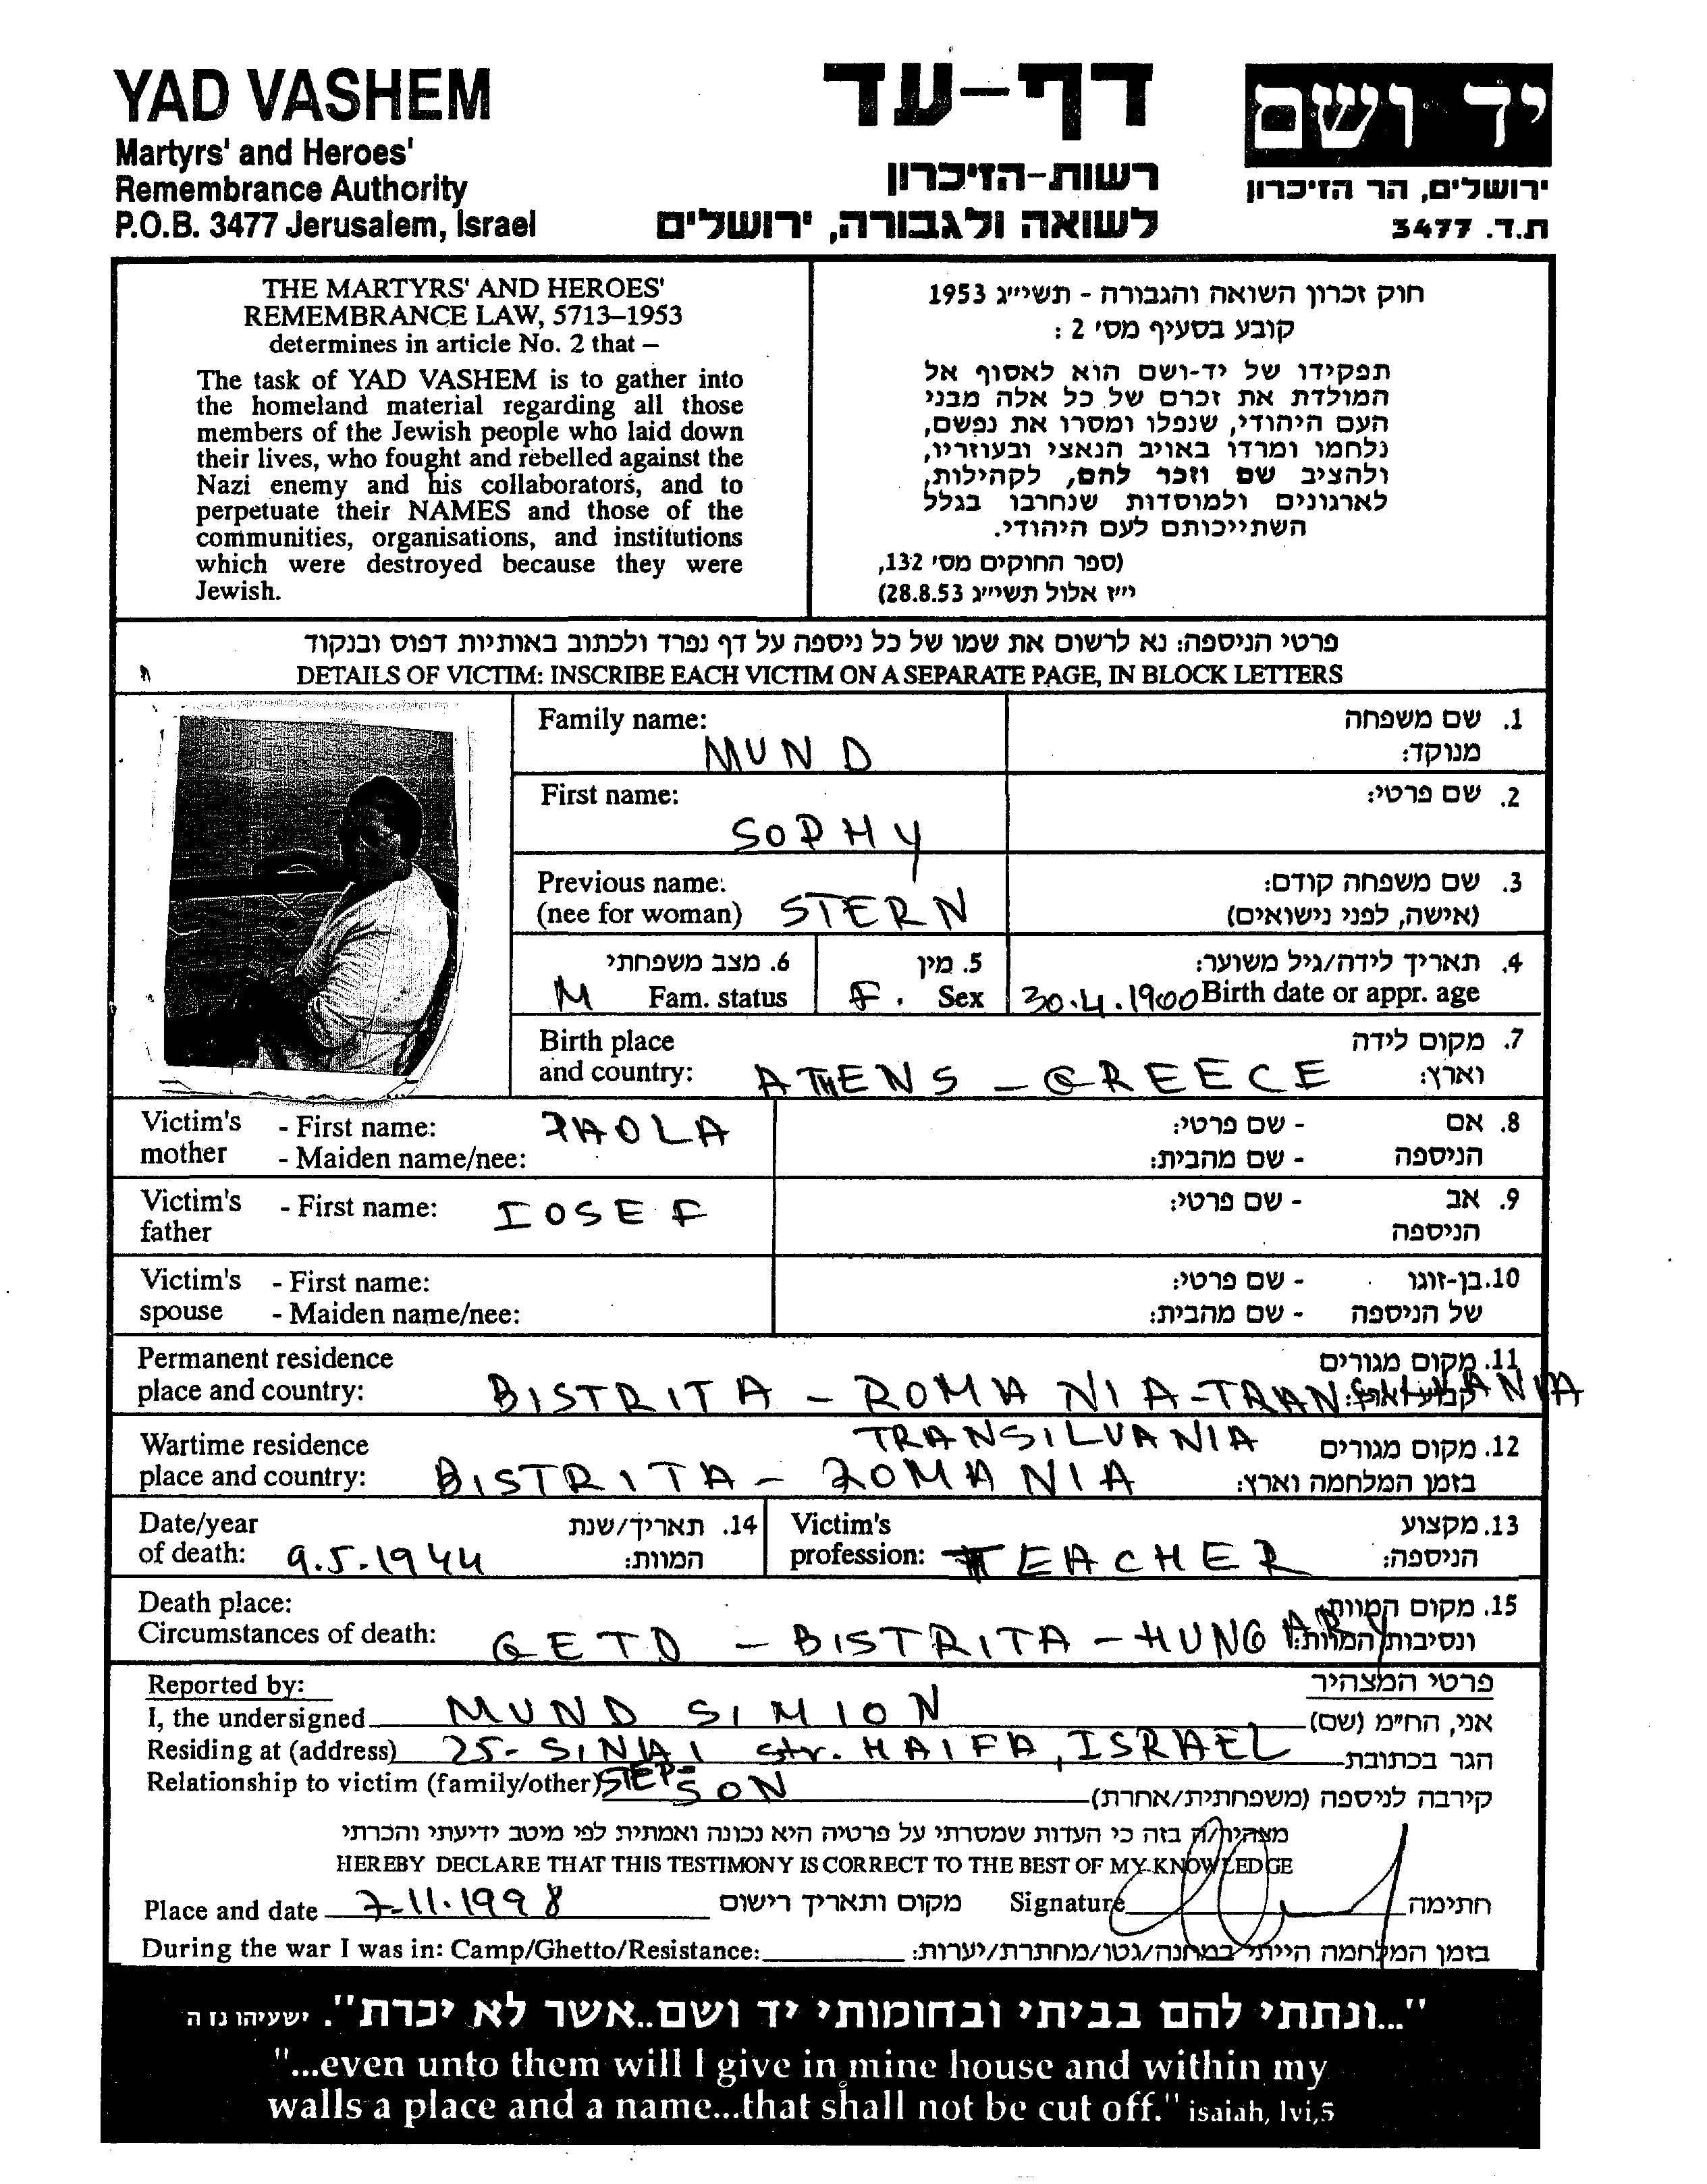 YAD VASHEM
Martyrs' and Heroes'
Remembrance Authority
P.O.B. 3477 Jerusalem, Israel
דף-עד
רשות-הזיכרון
לשואה ולגבורה, ירושלים
יד ושם
ירושלים, הר הזיכרון
ת.ד. 3477
THE MARTYRS' AND HEROES'
REMEMBRANCE LAW, 5713–1953
determines in article No. 2 that –
The task of YAD VASHEM is to gather into
the homeland material regarding all those
members of the Jewish people who laid down
their lives, who fought and rebelled against the
Nazi enemy and his collaborators, and to
perpetuate their NAMES and those of the
communities, organisations, and institutions
which were destroyed because they were
Jewish.
חוק זכרון השואה והגבורה - תשי״ג 1953
קובע בסעיף מס׳ 2 :
תפקידו של יד-ושם הוא לאסוף אל
המולדת את זכרם של כל אלה מבני
העם היהודי, שנפלו ומסרו את נפשם,
נלחמו ומרדו באויב הנאצי ובעוזריו,
ולהציב שם וזכר להם, לקהילות,
לארגונים ולמוסדות שנחרבו בגלל
השתייכותם לעם היהודי.
(ספר החוקים מס׳ 132,
י״ז אלול תשי״ג 28.8.53)
פרטי הניספה: נא לרשום את שמו של כל ניספה על דף נפרד ולכתוב באותיות דפוס ובנקוד
DETAILS OF VICTIM: INSCRIBE EACH VICTIM ON A SEPARATE PAGE, IN BLOCK LETTERS
Family name: 1. שם משפחה
MUND מנוקד:
First name: 2. שם פרטי:
SOPHY
Previous name: 3. שם משפחה קודם:
(nee for woman) STERN (אישה, לפני נישואים)
6. מצב משפחתי 5. מין 4. תאריך לידה/גיל משוער:
M Fam. status F. Sex 30.4.1900 Birth date or appr. age
Birth place 7. מקום לידה
and country: ATHENS - GREECE וארץ:
Victim's - First name: PAOLA - שם פרטי: 8. אם
mother - Maiden name/nee: - שם מהבית: הניספה
Victim's - First name: IOSEF - שם פרטי: 9. אב
father הניספה
Victim's - First name: - שם פרטי: 10. בן-זוגו
spouse - Maiden name/nee: - שם מהבית: של הניספה
Permanent residence 11. מקום מגורים
place and country: BISTRITA - ROMANIA - TRANSILVANIA קבוע וארץ:
Wartime residence TRANSILVANIA 12. מקום מגורים
place and country: BISTRITA - ROMANIA בזמן המלחמה וארץ:
Date/year 14. תאריך/שנת Victim's 13. מקצוע
of death: 9.5.1944 המוות: profession: TEACHER הניספה:
Death place: 15. מקום המוות
Circumstances of death: GETO - BISTRITA - HUNGARY ונסיבות המוות:
Reported by: פרטי המצהיר
I, the undersigned MUND SIMION אני, הח״מ (שם)
Residing at (address) 25 - SINAI str. HAIFA, ISRAEL הגר בכתובת
Relationship to victim (family/other) STEP-SON קירבה לניספה (משפחתית/אחרת)
מצהיר/ה בזה כי העדות שמסרתי על פרטיה היא נכונה ואמתית לפי מיטב ידיעתי והכרתי
HEREBY DECLARE THAT THIS TESTIMONY IS CORRECT TO THE BEST OF MY KNOWLEDGE
Place and date 7-11.1998 מקום ותאריך רישום Signature חתימה
During the war I was in: Camp/Ghetto/Resistance: בזמן המלחמה הייתי במחנה/גטו/מחתרת/יערות:
"...ונתתי להם בביתי ובחומותי יד ושם..אשר לא יכרת". ישעיהו נז ה
"...even unto them will I give in mine house and within my
walls a place and a name...that shall not be cut off." isaiah, lvi,5